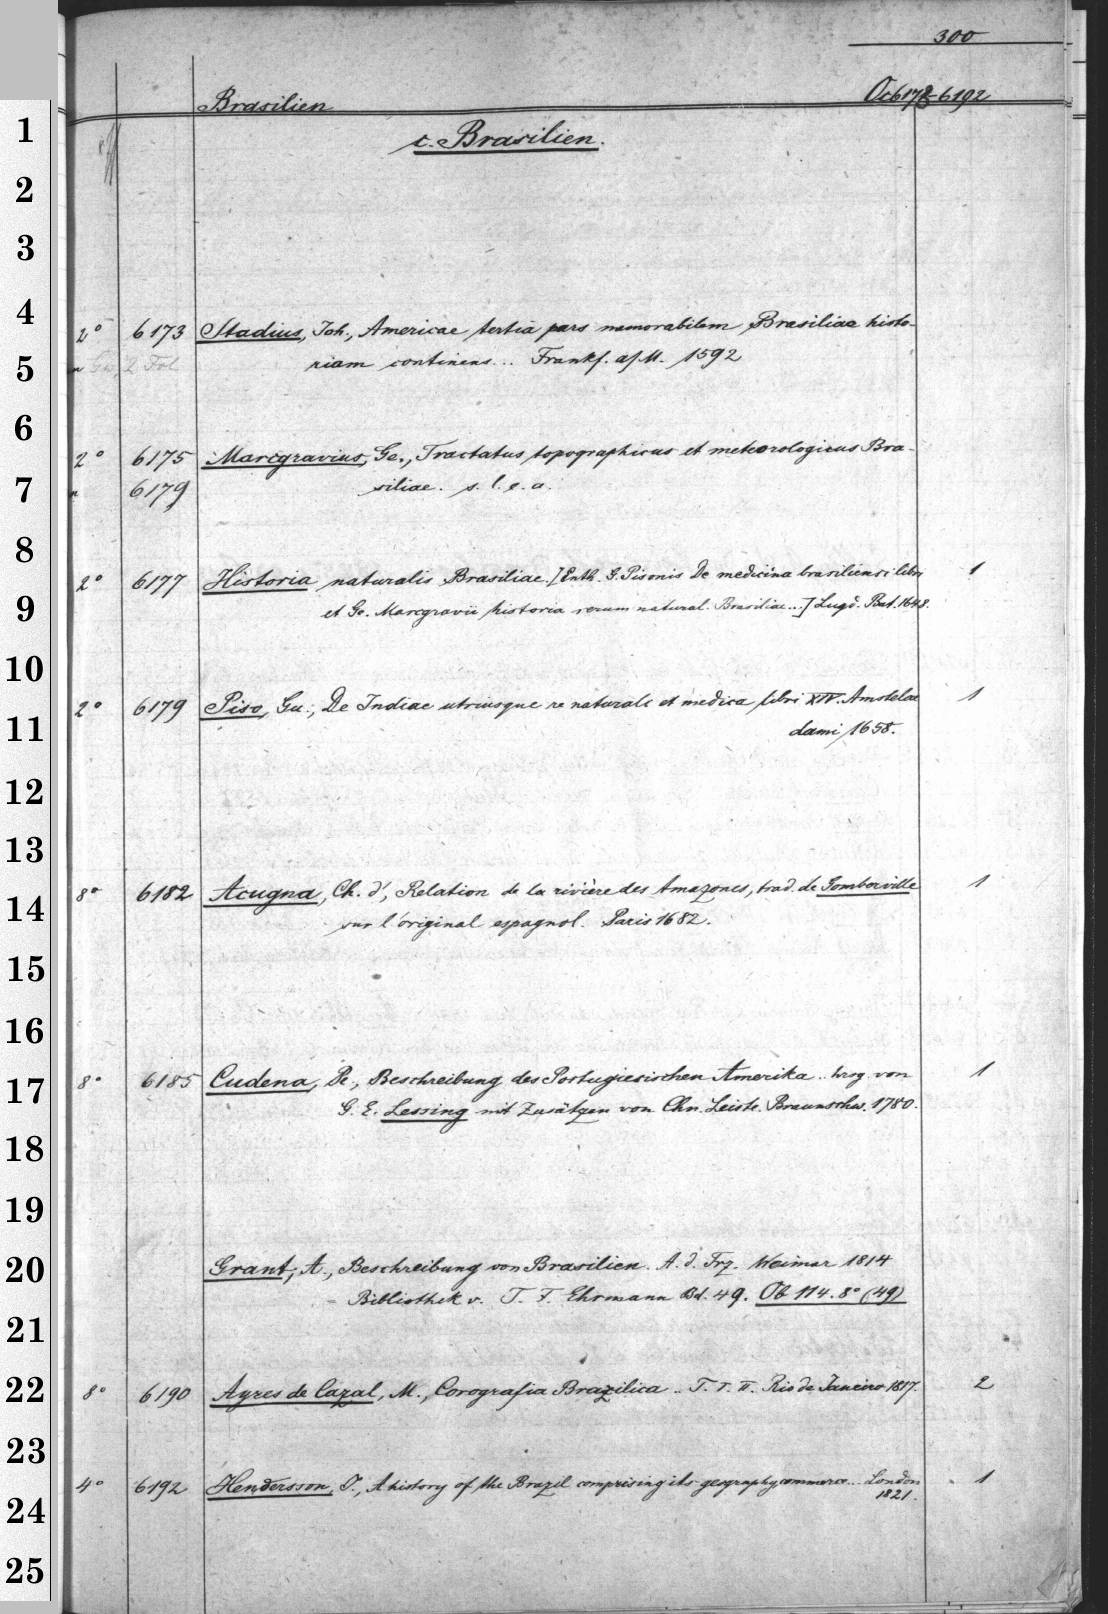 300
Brasilien Oc 6173-6192
c. Brasilien.
1
2
3
4
2° 6173 Stadius, Joh., Americae tertia pars memorabilem Brasiliae histo-
5
2 Fol riam continens... Frankf. a/M. 1592
6
2° 6175 Marcgravius, Ge., Tractatus topographicus et meteorologicus Bra-
7
6179 siliae. s. l. e. a.
8
2° 6177 Historia naturalis Brasiliae. [Enth. G. Pisonis De medicina brasiliensi libri 1
9
et Ge. Marcgravii historia rerum natural. Brasiliae...] Lugd. Bat. 1648.
10
2° 6179 Piso, Gu., De Indiae utriusque re naturali et medica libri XIV. Amstelae 1
11
dami 1658.
12
13
8° 6182 Acugna, Ch. d', Relation de la rivière des Amazones, trad. de Gomberville 1
14
sur l'original espagnol. Paris 1682.
15
16
8° 6185 Cudena, Pe., Beschreibung des Portugiesischen Amerika .. hrsg. von 1
17
G. E. Lessing mit Zusätzen von Chn. Leiste. Braunschw. 1780.
18
19
Grant, A., Beschreibung von Brasilien. A. d. Frz. Weimar 1814
20
= Bibliothek v. T. F. Ehrmann Bd. 49. Ob 114. 8° (49)
21
22
8° 6190 Ayres de Cazal, M., Corografia Brazilica .. T. I. II. Rio de Janeiro 1817. 2
23
4° 6192 Hendersson, J., A history of the Brazil comprising its geography commerce... London 1
24
1821.
25